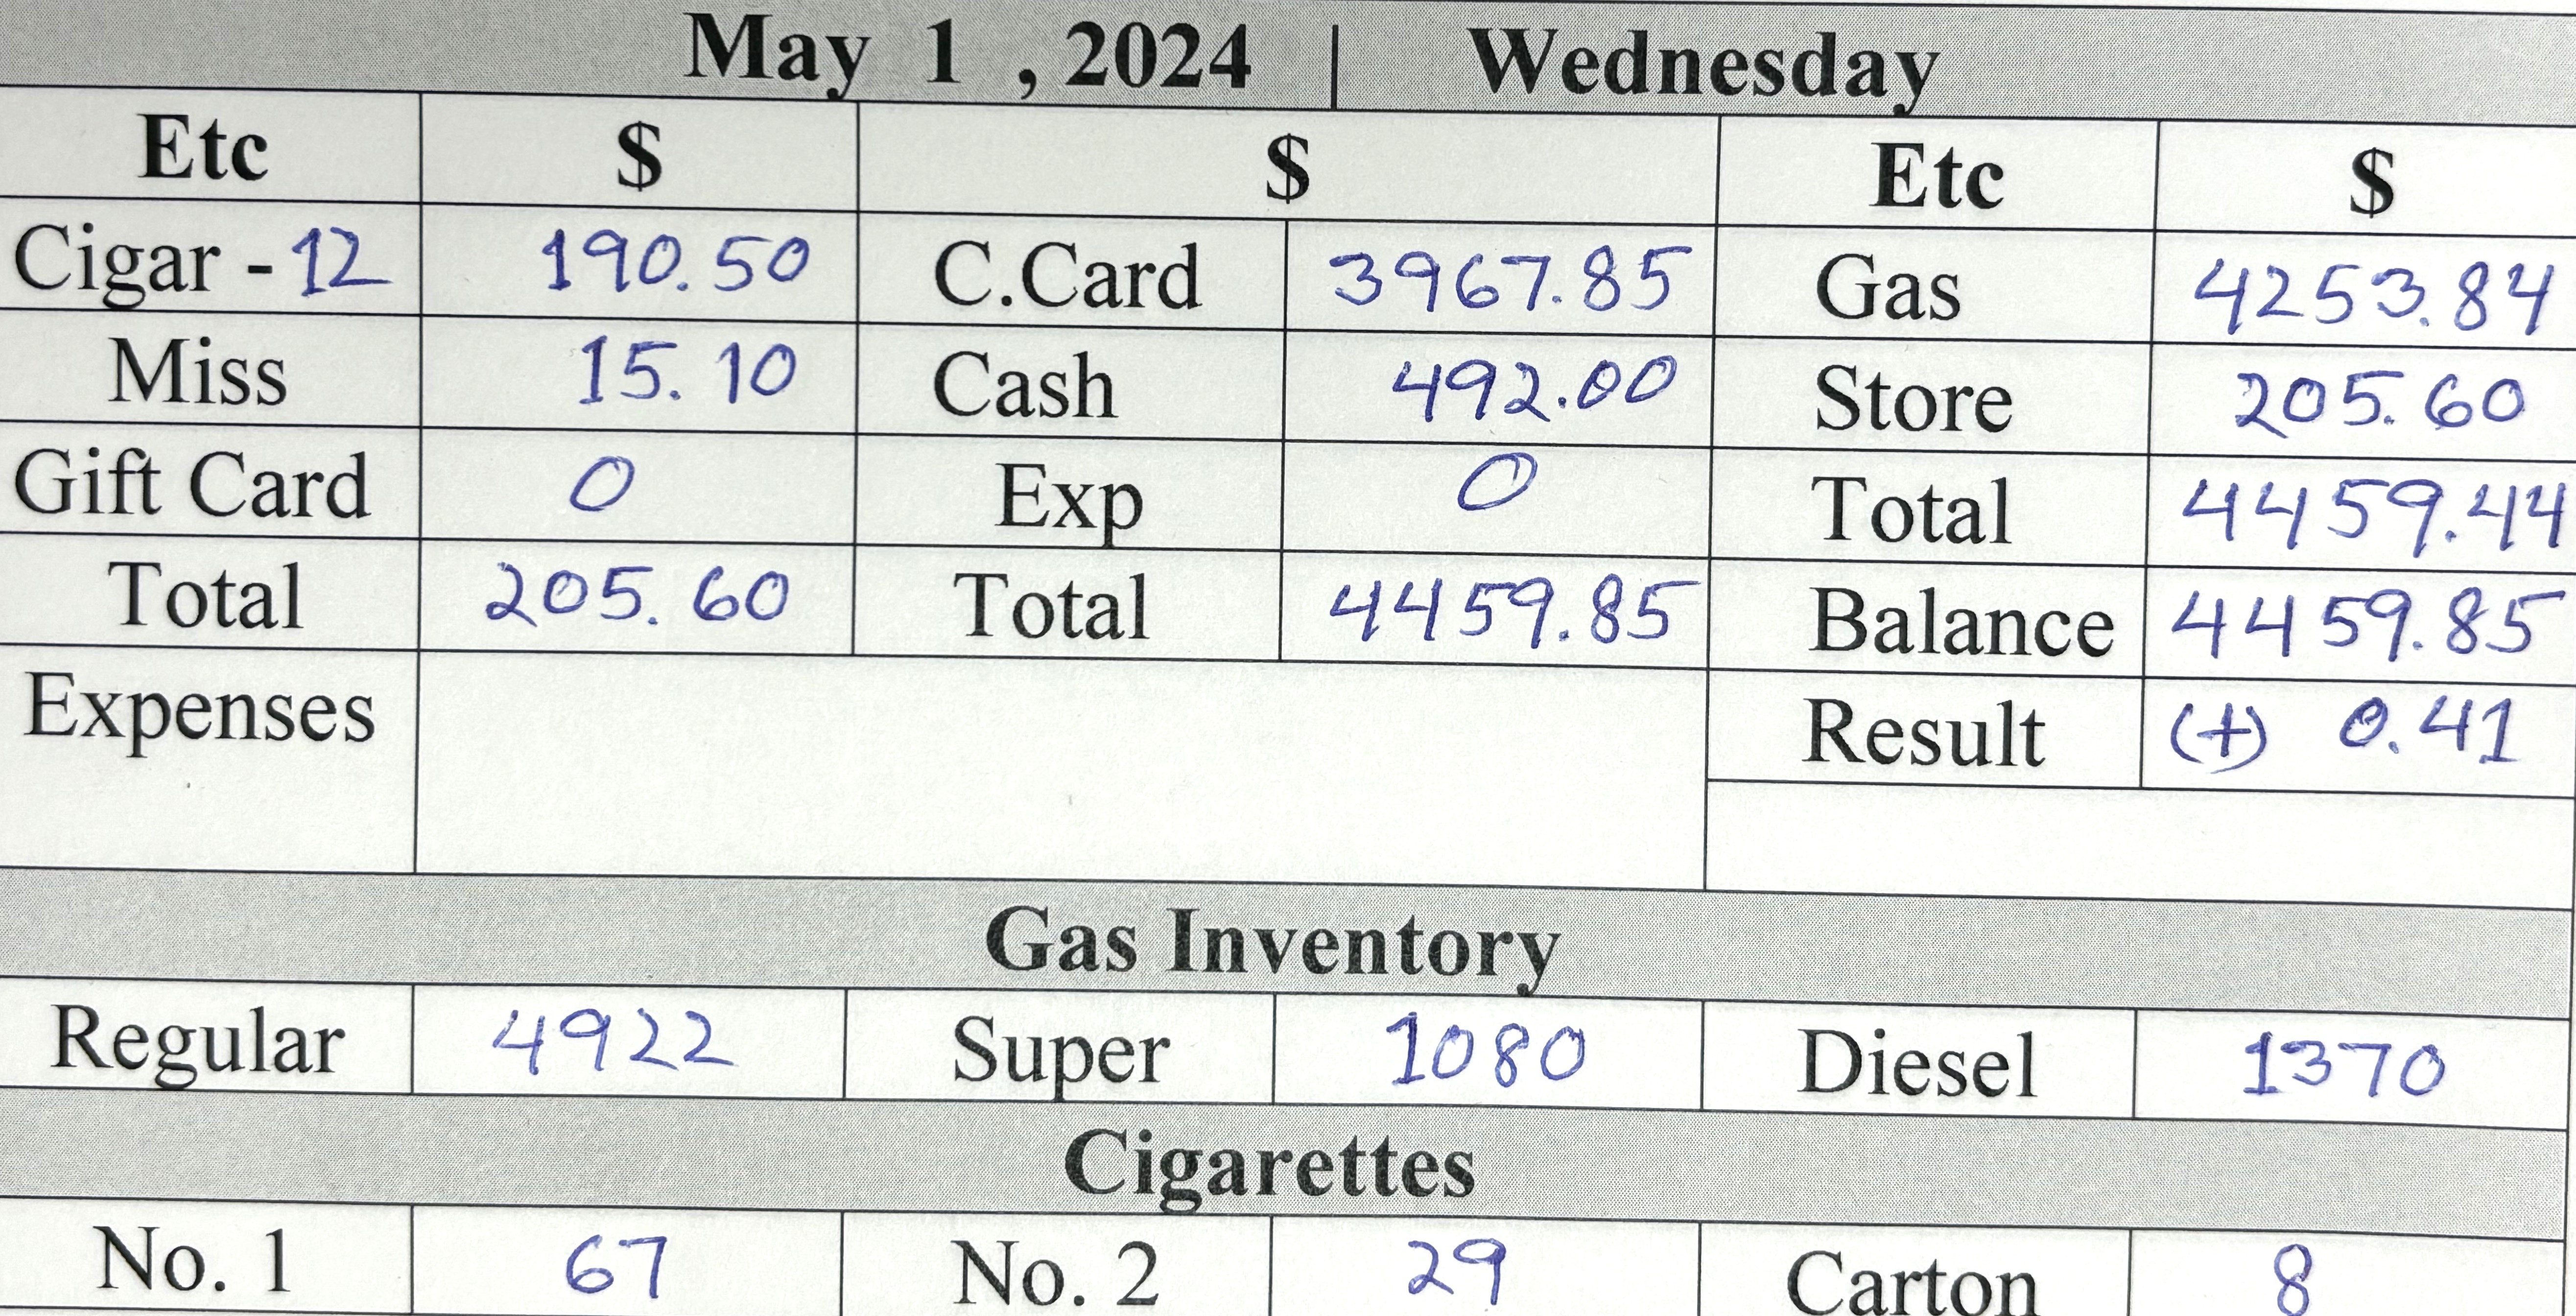 May 1 , 2024 | Wednesday
Etc $ $ Etc $
Cigar - 12 190.50 C.Card 3967.85 Gas 4253.84
Miss 15.10 Cash 492.00 Store 205.60
Gift Card 0 Exp 0 Total 4459.44
Total 205.60 Total 4459.85 Balance 4459.85
Expenses Result (+) 0.41
Gas Inventory
Regular 4922 Super 1080 Diesel 1370
Cigarettes
No. 1 67 No. 2 29 Carton 8